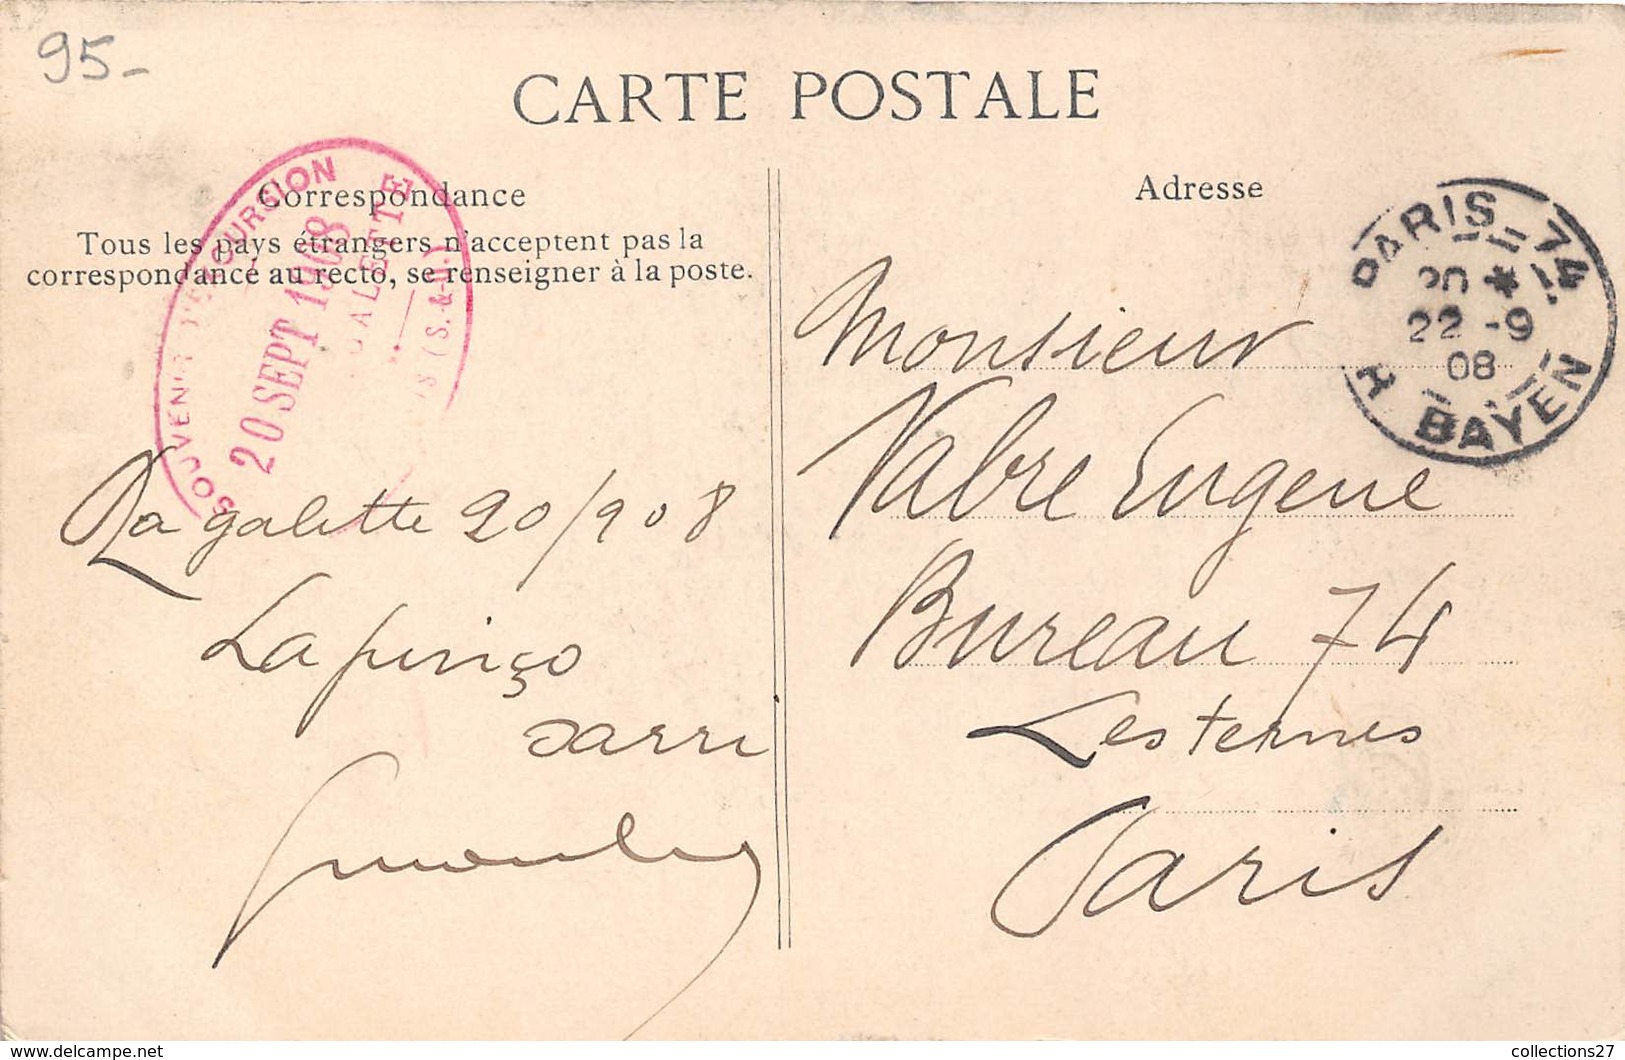 95-
CARTE POSTALE
Correspondance
Tous les pays étrangers n'acceptent pas la
correspondance au recto, se renseigner à la poste.
SOUVENIR D'EXCURSION
20 SEPT 1908
GALETTE
(S.-&-O.)
La galette 20/908
Adresse
PARIS 74
20 *
22 -9
08
R. BAYEN
Monsieur
Vabre Eugene
Bureau 74
Les ternes
Paris
collections27